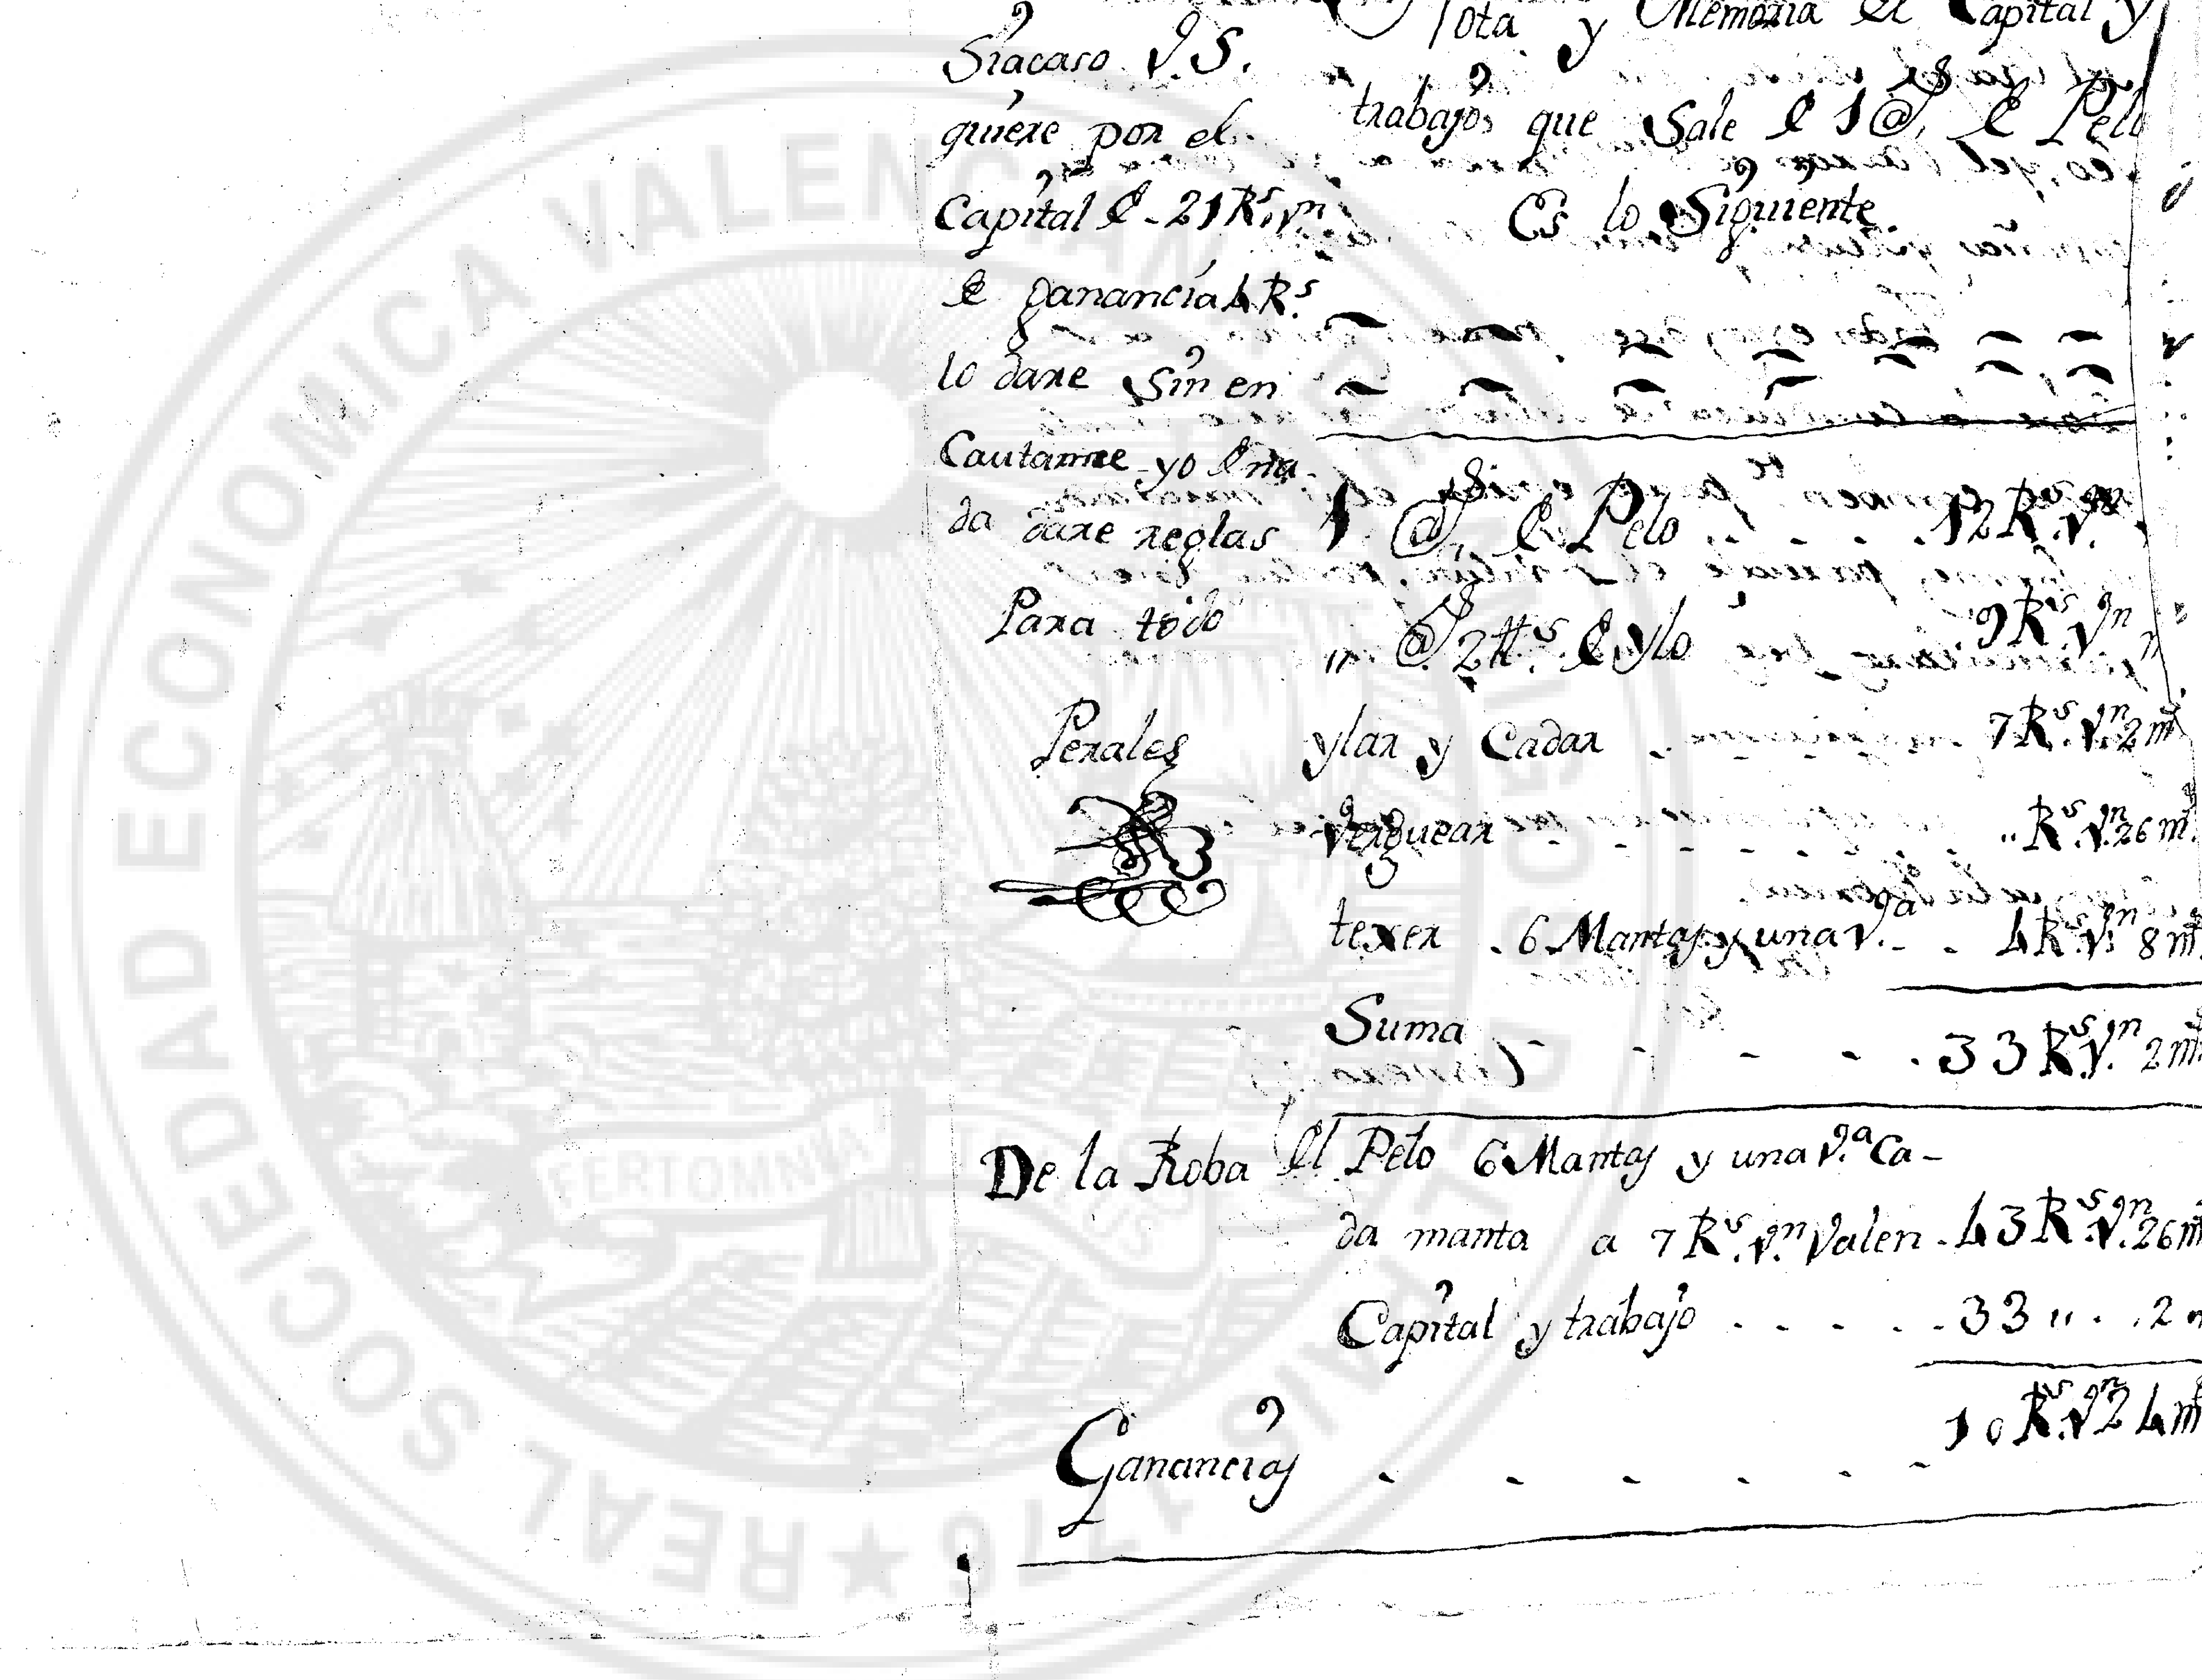 Siacaso V.S.
quiere por el
Capital de 21 Rs. Vn.
de ganancia 4 Rs.
lo dare sin en
Cautarme yo de na
da dare reglas
Para todo
Perales
Nota y Memoria de Capital y
trabajo, que Sale de 1 @, de Pelo
Es lo Siguiente
1 @, de Pelo . . . . 12 R. Vn.
" @ 2 tts. de ylo 9 Rs. Vn "
ylar y Cadar . . . . . 7 Rs. Vn. 2 m
Verguear - - - - - - - " Rs. Vn. 26 m.
texer . 6 Mantas y una V.a - - 4 Rs. Vn. 8 m.
Suma - - - - . 33 Rs. Vn. 2 m.
De la Roba del Pelo 6 Mantas y una V.a Ca-
da manta a 7 Rs. Vn. Valen . 43 Rs. Vn. 26 m
Capital y trabajo . . . . . 33 " . . 2 m
10 Rs. Vn 24 m
Ganancias - - - - - -
REAL SOCIEDAD ECONOMICA VALENCIANA
1776